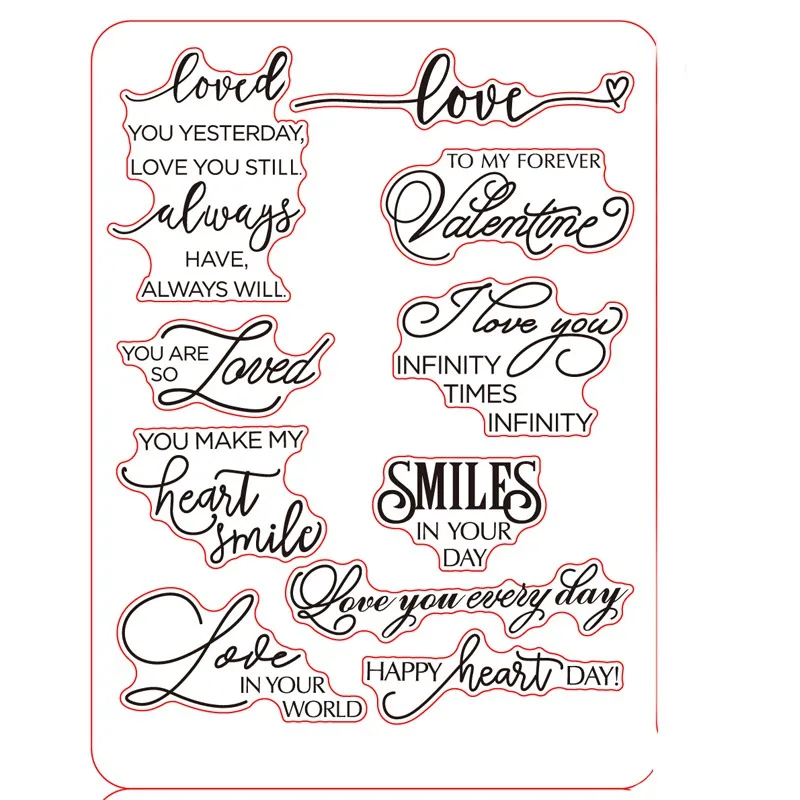 loved
YOU YESTERDAY,
LOVE YOU STILL.
always
HAVE,
ALWAYS WILL.
love
TO MY FOREVER
Valentine
YOU ARE
SO Loved
I love you
INFINITY
TIMES
INFINITY
YOU MAKE MY
heart
smile
SMILES
IN YOUR
DAY
Love you every day
Love
IN YOUR
WORLD
HAPPY heart DAY!